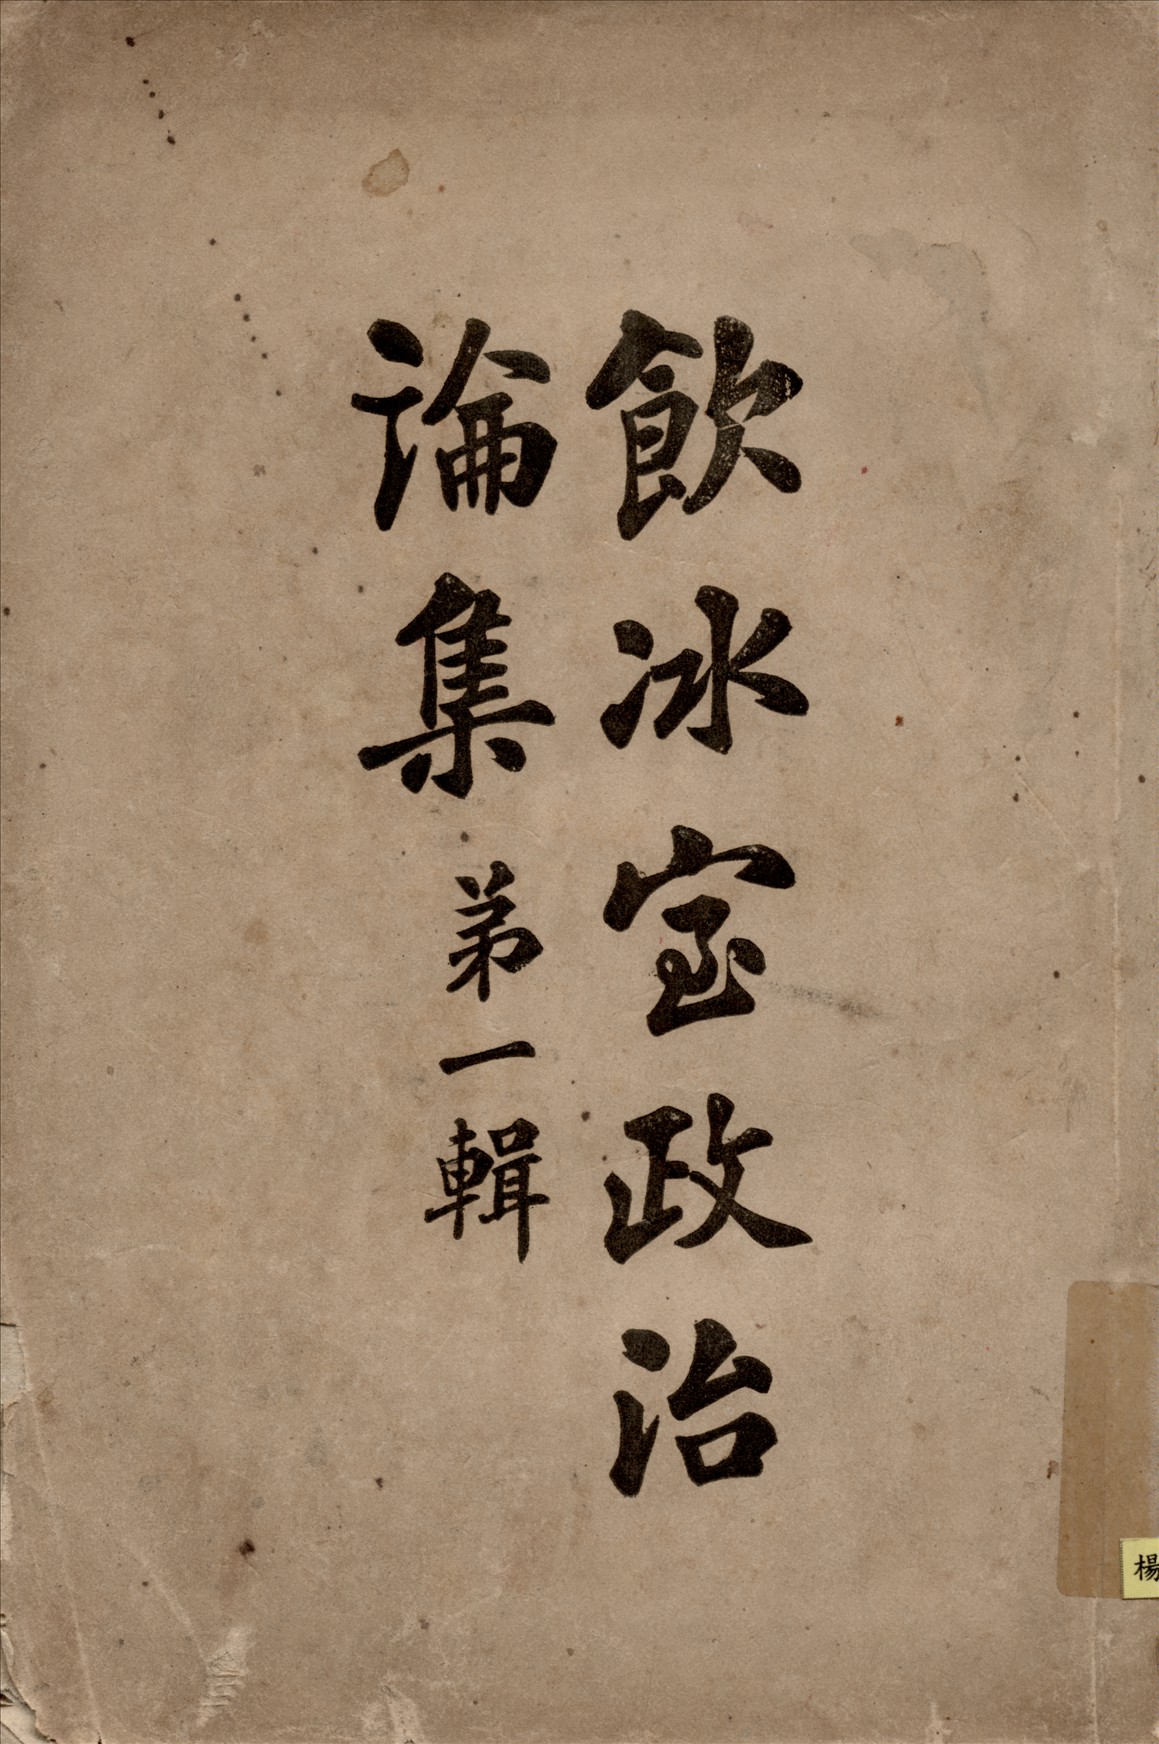 飲冰室政治
論集
弟一輯
楊